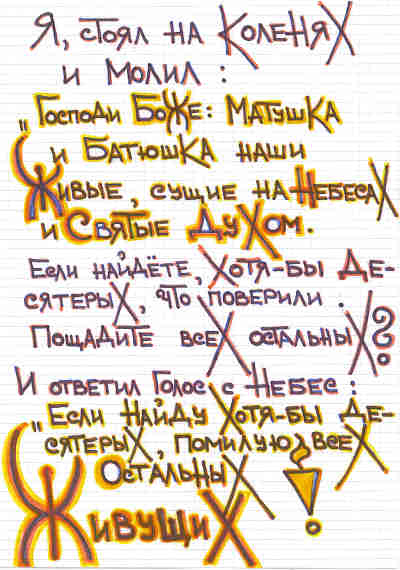 Я, стоял на Коленях
и Молил :
„Господи Боже: Матушка
и Батюшка наши
Живые, сущие на Небесах
и Святые Духом.
Если найдёте, Хотя-бы Де-
сятерых, что поверили.
Пощадите всех остальных?
И ответил Голос с Небес :
„Если Найду Хотя-бы Де-
сятерых, помилую всех
Остальных
Живущих!